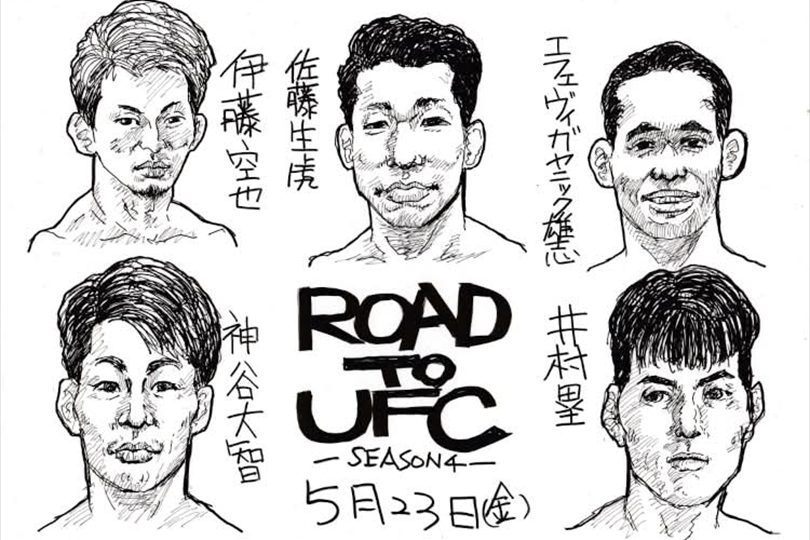 伊藤空也
佐藤生虎
エフェヴィガヤニック雄志
神谷大智
ROAD
TO
UFC
—SEASON4—
5月23日(金)
井村塁